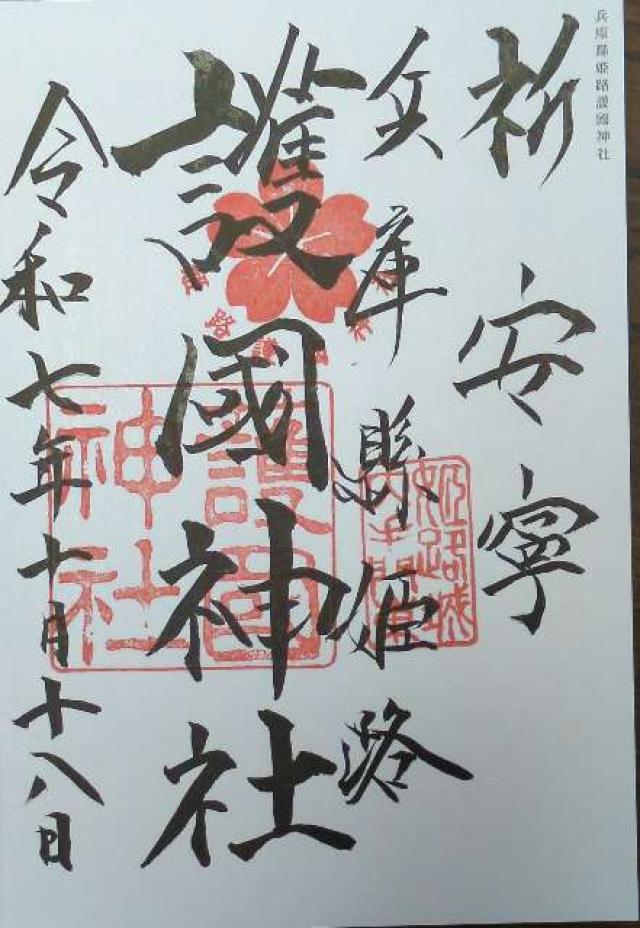 兵庫縣姫路護國神社
祈安寧
兵庫縣姫路
護國神社
令和七年十月十八日
護國
神社
姫路城